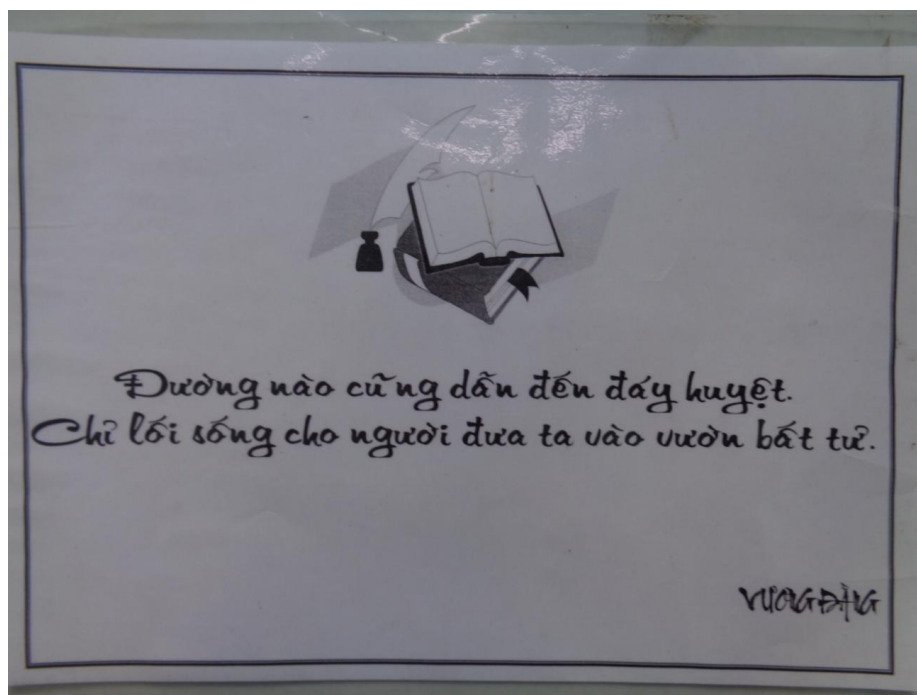 Đường nào cũng dẫn đến đáy huyệt.
Chỉ lối sống cho người đưa ta vào vườn bất tử.
VƯƠNG ĐẰNG